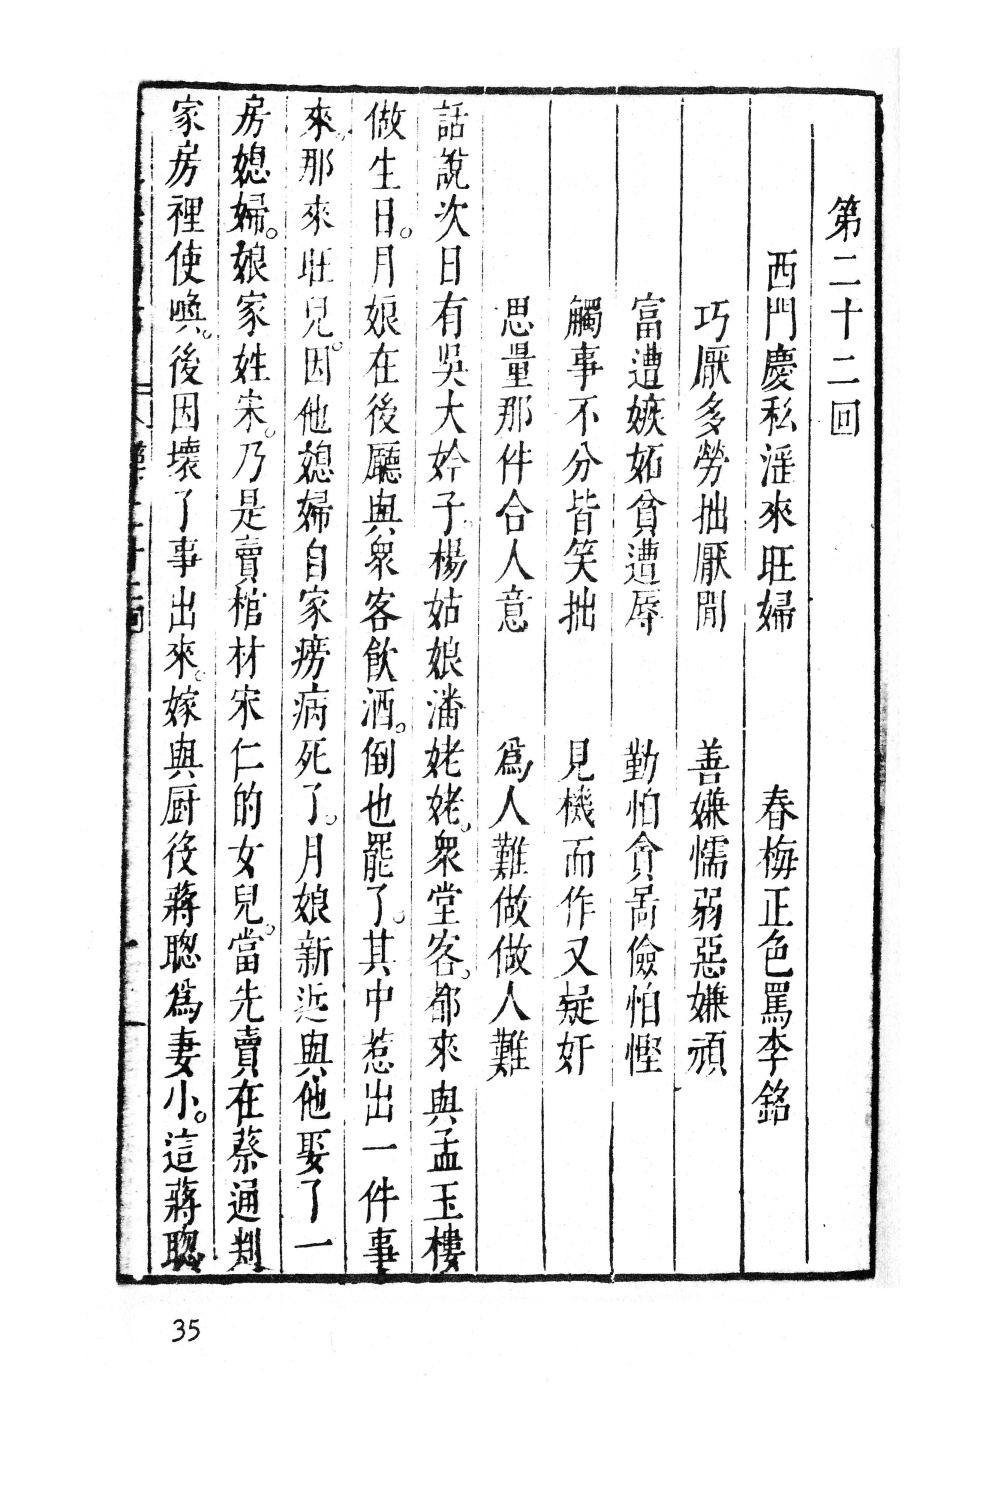 第二十二回
西門慶私淫來旺婦　春梅正色罵李銘
巧厭多勞拙厭閒　善嫌懦弱惡嫌頑
富遭嫉妬貧遭辱　勤怕貪啚儉怕慳
觸事不分皆笑拙　見機而作又疑奸
思量那件合人意　爲人難做做人難
話說次日有吳大妗子楊姑娘潘姥姥。衆堂客。都來與孟玉樓
做生日。月娘在後廳與衆客飲酒。倒也罷了。其中惹出一件事
來。那來旺兒。因他媳婦自家癆病死了。月娘新近與他娶了一
房媳婦。娘家姓宋。乃是賣棺材宋仁的女兒。當先賣在蔡通判
家房裡使喚。後因壞了事出來。嫁與厨役蔣聰爲妻小。這蔣聰
35